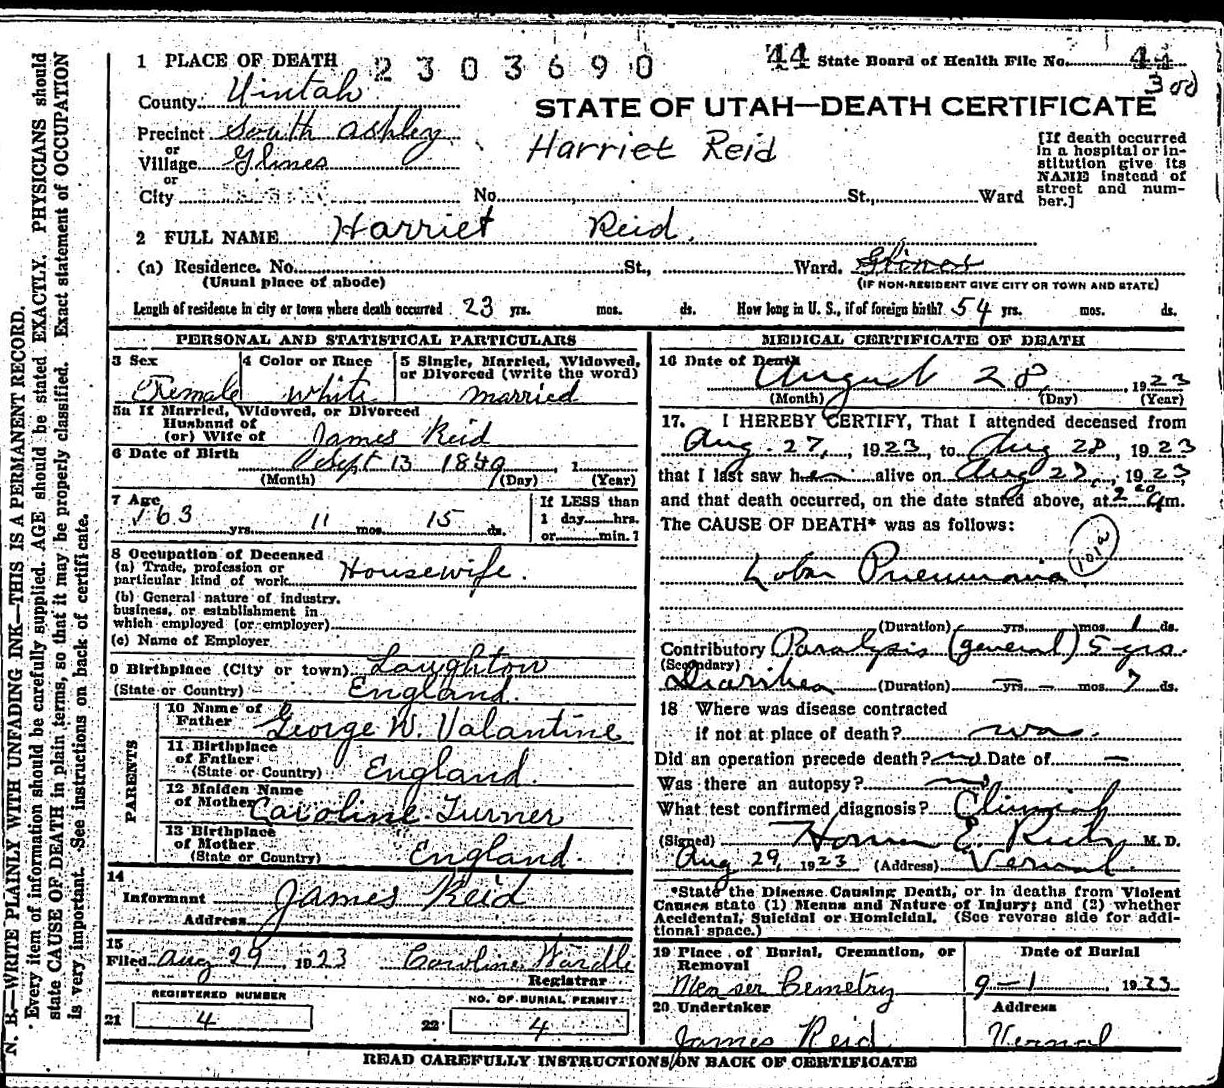 N. B.—WRITE PLAINLY WITH UNFADING INK—THIS IS A PERMANENT RECORD.
Every item of information should be carefully supplied. AGE should be stated EXACTLY. PHYSICIANS should
state CAUSE OF DEATH in plain terms, so that it may be properly classified. Exact statement of OCCUPATION
is very important. See instructions on back of certificate.
1 PLACE OF DEATH 2303690 44 State Board of Health File No. 44
300
County Uintah
STATE OF UTAH—DEATH CERTIFICATE
Precinct South Ashley
or
Village Glines
or
City No. St., Ward
Harriet Reid
[If death occurred
in a hospital or in-
stitution give its
NAME instead of
street and num-
ber.]
2 FULL NAME Harriet Reid.
(a) Residence. No. St., Ward. Glines
(Usual place of abode) (IF NON-RESIDENT GIVE CITY OR TOWN AND STATE)
Length of residence in city or town where death occurred 23 yrs. mos. ds. How long in U. S., if of foreign birth? 54 yrs. mos. ds.
PERSONAL AND STATISTICAL PARTICULARS
3 Sex 4 Color or Race 5 Single, Married, Widowed,
or Divorced (write the word)
Female white married
5a If Married, Widowed, or Divorced
Husband of
(or) Wife of James Reid
6 Date of Birth Sept 13 1849, 1
(Month) (Day) (Year)
7 Age If LESS than
63 yrs. 11 mos. 15 ds. 1 day hrs.
or min.?
8 Occupation of Deceased
(a) Trade, profession or
particular kind of work Housewife.
(b) General nature of industry,
business, or establishment in
which employed (or employer)
(c) Name of Employer
9 Birthplace (City or town) Loughton
(State or Country) England.
PARENTS
10 Name of
Father George W. Valantine
11 Birthplace
of Father
(State or Country) England.
12 Maiden Name
of Mother Caroline Turner
13 Birthplace
of Mother
(State or Country) England.
14
Informant James Reid
Address
15
Filed Aug 29 1923 Caroline Wardle
Registrar
REGISTERED NUMBER NO. OF BURIAL PERMIT
21 4 22 4
MEDICAL CERTIFICATE OF DEATH
16 Date of Death
August 28, 1923
(Month) (Day) (Year)
17. I HEREBY CERTIFY, That I attended deceased from
Aug. 27, 1923, to Aug 28, 1923
that I last saw her alive on Aug 27, 1923,
and that death occurred, on the date stated above, at 2 20 a m.
The CAUSE OF DEATH* was as follows:
101a
Lobar Pneumonia
(Duration) yrs. mos. 1 ds.
Contributory Paralysis (general) 5 yrs.
(Secondary)
Diarrhea (Duration) — yrs. — mos. 7 ds.
18 Where was disease contracted
if not at place of death? was.
Did an operation precede death? no Date of —
Was there an autopsy? no
What test confirmed diagnosis? Clinical
(Signed) Homer E. Rich M. D.
Aug 29, 1923 (Address) Vernal.
*State the Disease Causing Death, or in deaths from Violent
Causes state (1) Means and Nature of Injury; and (2) whether
Accidental, Suicidal or Homicidal. (See reverse side for addi-
tional space.)
19 Place of Burial, Cremation, or Date of Burial
Removal
Measer Cemetry 9-1 1923
20 Undertaker Address
James Reid Vernal
READ CAREFULLY INSTRUCTIONS ON BACK OF CERTIFICATE